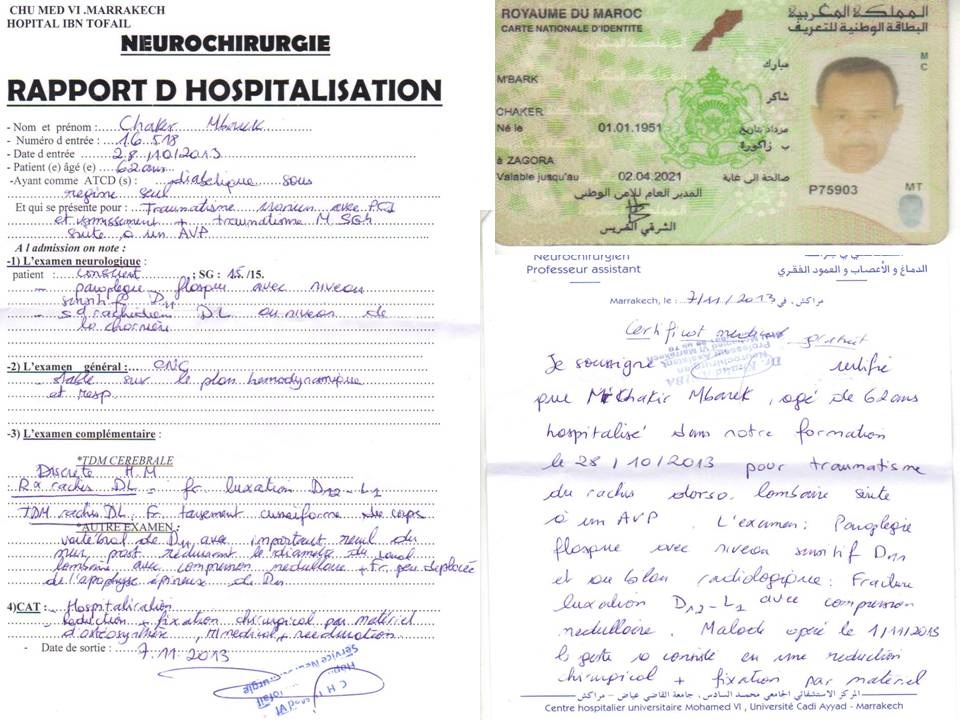 CHU MED VI .MARRAKECH
HOPITAL IBN TOFAIL
NEUROCHIRURGIE
RAPPORT D HOSPITALISATION
- Nom et prénom : Chaker Mbarek
- Numéro d entrée : 16 518
- Date d entrée 28/10/2013
- Patient (e) âgé (e) 62 ans
-Ayant comme ATCD (s) : diabétique sous
régime seul
Et qui se présente pour : Traumatisme avec PCI
et vomissement + traumatisme
suite à un AVP
A l admission on note :
-1) L'examen neurologique :
patient : conscient ; SG : 15 /15.
- paraplegie flasque avec niveau
sensitif D11
- sd rachidien DL au niveau de
la charnière
-2) L'examen général : CNC
- stable sur le plan hemodynamique
et resp
-3) L'examen complémentaire :
*TDM CEREBRALE
Discrète H.M
Rx rachis DL = fr luxation D12-L1
TDM rachis DL, Fr tassement cuneiforme du corps
*AUTRE EXAMEN :
vertébral de D11 avec important recul du
mur post réduisant le diamètre du canal
lombaire avec compression medullaire + Fr peu deplacée
de l'apophyse épineux de D11
4)CAT : - Hospitalisation
- Reduction + fixation chirurgical par matériel
d'ostéosynthèse, medical + reeducation
- Date de sortie : 7.11.2013
ROYAUME DU MAROC
المملكة المغربية
CARTE NATIONALE D'IDENTITE
البطاقة الوطنية للتعريف
M'BARK
مبارك
CHAKER
شاكر
Né le 01.01.1951 مزداد بتاريخ
ب زاكورة
à ZAGORA
Valable jusqu'au 02.04.2021 صالحة إلى غاية
المدير العام للأمن الوطني
P75903
MT
الشرقي الضريس
M
C
Neurochirurgien
Professeur assistant
الدماغ و الأعصاب و العمود الفقري
Marrakech, le : 7/11/2013 مراكش ، في
Certificat medical gratuit
Je soussigné certifie
que Mr Chakir Mbarek, agé de 62 ans
hospitalisé dans notre formation
le 28/10/2013 pour traumatisme
du rachis dorso lombaire suite
à un AVP. L'examen : Paraplegie
flasque avec niveau sensitif D11
et au bilan radiologique : Fracture
luxation D12-L1 avec compression
medullaire. Malade opéré le 1/11/2013
le geste a consisté en une reduction
chirurgical + fixation par matériel
المركز الاستشفائي الجامعي محمد السادس، جامعة القاضي عياض - مراكش
Centre hospitalier universitaire Mohamed VI , Université Cadi Ayyad - Marrakech